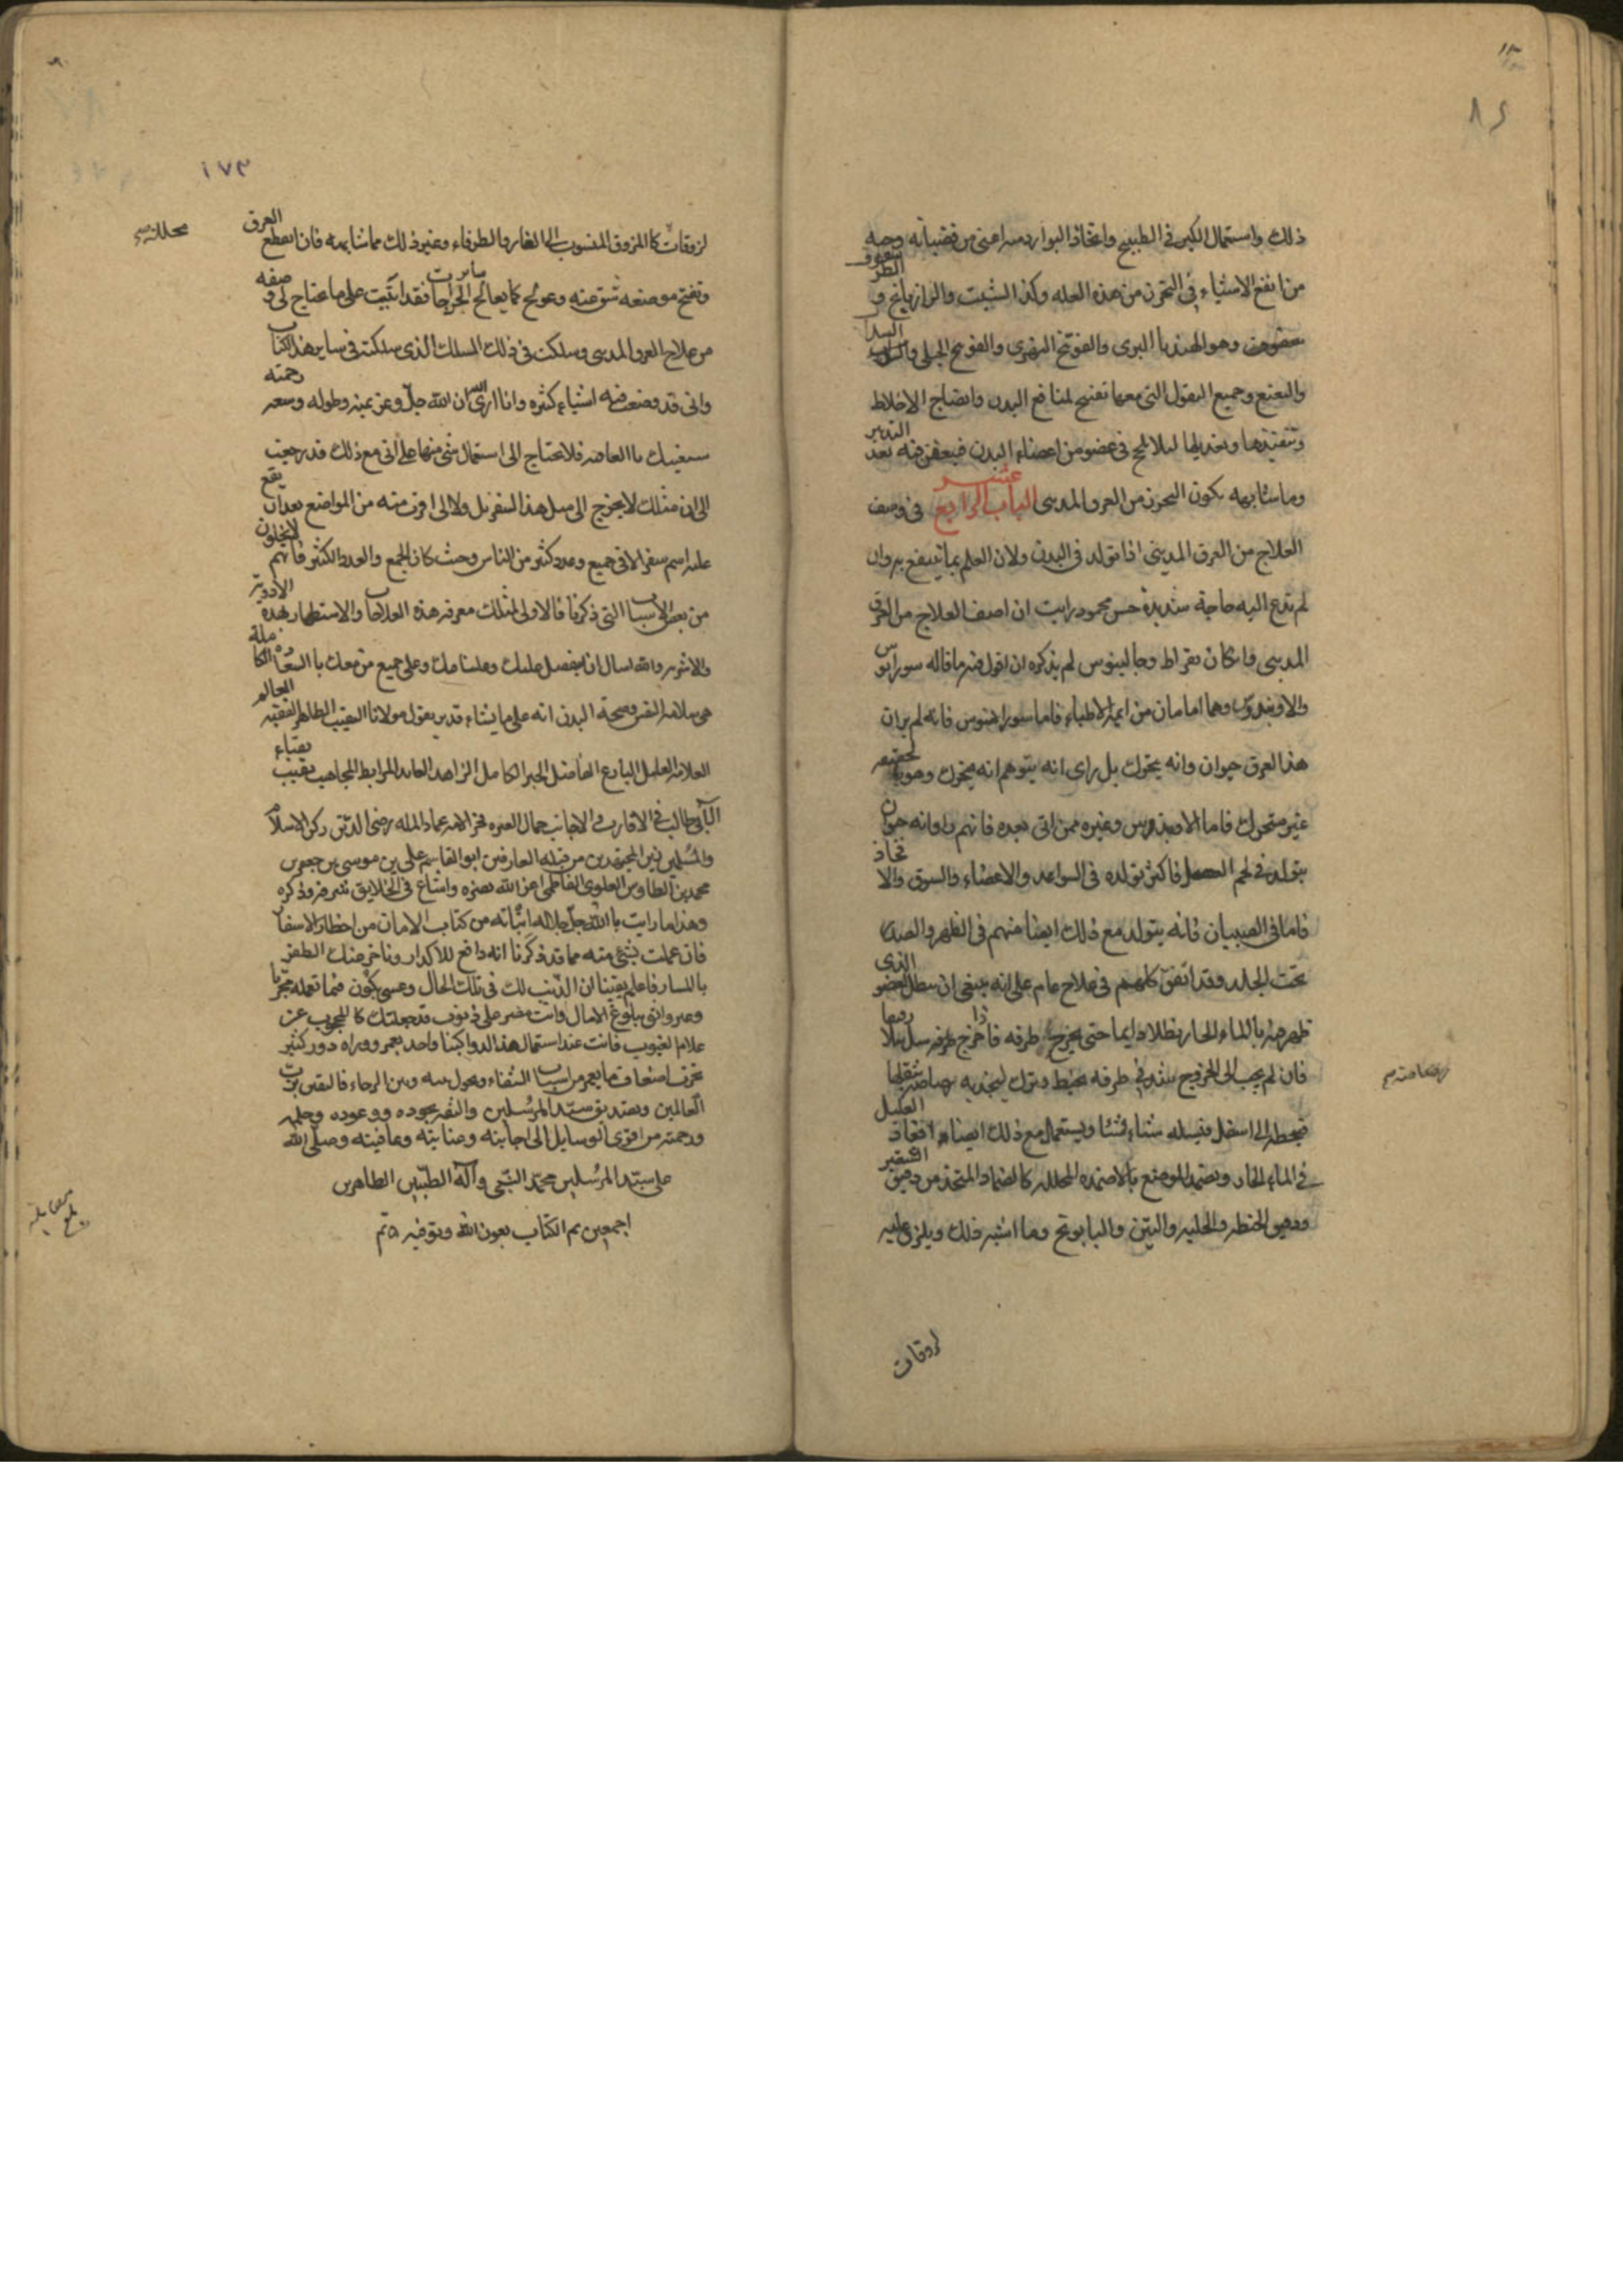 ذلك واستعمال الكبر في الطبيخ واتخاذ البوارد منه اعني من قضبانه وحبه
من انفع الاشياء في التحرز من هذه العله وكذا الشبت والرازيانج و
وهو الهندبا البرى والفوتنج النهرى والفوتنج الجبلى والسداب
والنعنع وجميع البقول التى معها تفتيح لمنافع البدن وانضاج الاخلاط
وتنفيذها وتعديلها لئلا تلحج فى عضو من اعضاء البدن فيعفن فيه بعد التدبير
وما شابهه يكون التحرز من العرق المدينى الباب الرابع عشر فى وصف
العلاج من العرق المدينى اذا تولد فى البدن ولان العلم بما ينتفع به وان
لم تدع اليه حاجة شديدة حسن محمود رايت ان اصف العلاج من العرق
المدينى وان كان بقراط وجالينوس لم يذكره ان اقول فيه ما قاله سورانوس
وهما امامان من ايمة الاطباء فاما سورانوس فانه لم ير ان
هذا العرق حيوان وانه يتحرك بل راى انه يتوهم انه يتحرك وهو بالحقيقه
غير متحرك فاما وغيره ممن اتى بعده فانهم راوا انه حيوان
يتولد فى لحم العضل فاكثر تولده فى السواعد والاعضاء والسوق والافخاذ
فاما فى الصبيان فانه يتولد مع ذلك ايضا منهم فى الظهر والصدر
تحت الجلد وقد اتفق كلهم فى علاج عام على انه ينبغى ان ينطل العضو الذى
ظهر منه بالماء الحار نطلا دايما حتى يخرج طرفه فاذا خرج طرفه
فان لم يجب الى الخروج شد فى طرفه بخيط وترك ليجذبه رصاصة بثقلها
فيحطه الى اسفل فيسله شئا فشئا ويستعمل مع ذلك ايضا اقعاد العليل
فى الماء الحار ويضمد الموضع بالاضمده المحلله كالضماد المتخذ من دقيق الشعير
ودقيق الحنطه والحلبه والتين والبابونج وما اشبه ذلك ويلزق عليه
لزوقات
لزوقات كالمزوق المنسوب الى الغار والطرفاء وغير ذلك مما شابهه فان انقطع العرق
وتفتح موضعه شق عنه وعولج كما يعالج ساير الجراحات فقد اتيت على ما يحتاج الى وصفه
من علاج العرق المدينى وسلكت فى ذلك المسلك الذى سلكت فى ساير هذا الكتاب
وانى قد وضعت فيه اشياء كثيره وانا ارى ان الله جل وعز بمنه وطوله وسعه رحمته
سيغنيك بالعافيه فلا تحتاج الى استعمال شئ منها على انى مع ذلك قد رجعت
الى ان مثلك لا يخرج الى مثل هذا السفر بل ولا الى اقرب منه من المواضع بعد ان يقع
عليه اسم سفر الا فى جميع وعدد كثير من الناس وحيث كان الجمع والعدد الكثير فانهم لا يخلون
من بعض الاسباب التى ذكرنا فالاولى لمثلك معرفه هذه العلاجات والاستظهار بهذه الادوية
والاشربه والله اسال ان يتفضل عليك وعلينا منك وعلى جميع من معك بالسعادة الكاملة
هى سلامة النفس وصحة البدن انه على ما يشاء قدير يقول مولانا النقيب الطاهر الفقيه العالم
العلامه العامل البارع الفاضل الحبر الكامل الزاهد العابد المرابط المجاهد نقيب نقباء
آل ابى طالب فى الاقارب والاجانب جمال العتره فخر الامه عماد المله رضى الدين ركن الاسلام
والمسلمين زين المجتهدين من قبيله العارفين ابو القاسم على بن موسى بن جعفر بن
محمد بن الطاوس العلوى الفاطمى اعز الله نصره واشاع فى الخلايق شرفه وذكره
وهذا ما رايت بالله جل جلاله اثباته من كتاب الامان من اخطار الاسفار
فان عملت بشئ منه مما قد ذكرنا انه دافع للاكدار وتاخر عنك الظفر
بالمسار فاعلم يقينا ان الذنب لك فى تلك الحال وعسى يكون فيما تعمله مجربا
وغير واثق ببلوغ الامال وانت مصر على ذنوب قد جعلتك كالمحجوب عن
علام الغيوب فانت عند استعمال هذا الدوا كبنا واحد يعمر ووراه دور كثير
تخرب اضعاف ما يعمر من اسباب الشفاء ويحول بينه وبين الرجاء فاليقين برب
العالمين وتصديق سيد المرسلين والثقه بجوده ووعوده وحلمه
ورحمته من اقوى الوسايل الى اجابته وعنايته وعافيته وصلى الله
على سيد المرسلين محمد النبى وآله الطيبين الطاهرين
اجمعين تم الكتاب بعون الله وتوفيقه تم
محللة
١٧٣